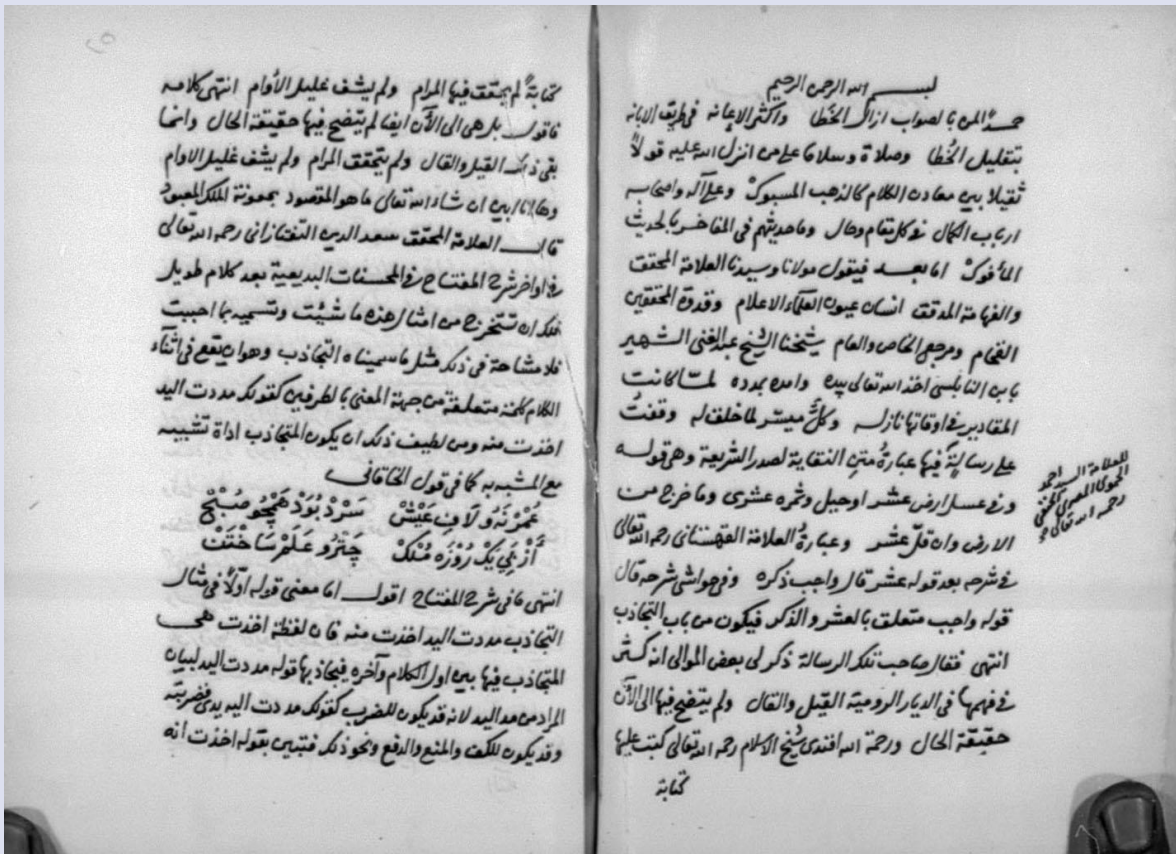 بسم الله الرحمن الرحيم
حمدا لمن بالصواب ازال الخَطا واكثر الاعانه في طريق الابانه
بتقليل الخُطا وصلاة وسلاما على من انزل الله عليه قولاً
ثقيلا بين معادن الكلام كالذهب المسبوك وعلى آله واصحابه
ارباب الكمال في كل مقام وحال وما حديثهم في المفاخر بالحديث
المأفوك اما بعد فيقول مولانا وسيدنا العلامة المحقق
والفهامة المدقق انسان عيون العلماء الاعلام وقدوة المحققين
الفخام ومرجع الخاص والعام شيخنا الشيخ عبد الغني الشهير
بابن النابلسي اخذ الله تعالى بيده وامده بمدده لمّا كانت
المقادير في اوقاتها نازله وكلٌّ ميسّر لما خلف له وقفتُ
على رسالةٍ فيها عبارةُ متن النقاية لصدر الشريعة وهي قوله
وفي عسل ارض عشر او جبل وثمره عشري وما خرج من
الارض وان قلّ عشر وعبارةُ العلامة القهستاني رحمه الله تعالى
في شرحه بعد قوله عشر قال واجب ذكره وفي حواشي شرحه قال
قوله واجب متعلق بالعشر والذكر فيكون من باب التجاذب
انتهى فقال صاحب تلك الرسالة ذكر لي بعض الموالي انه كثر
في فهمها في الديار الرومية القيل والقال ولم يتضح فيها الى الآن
حقيقة الحال ورحمة الله افندي شيخ الاسلام رحمه الله تعالى كتب عليها
كتابة
للعلامة السيد احمد
الحموي المصري الحنفي
رحمه الله تعالى
كتابةً لم يحقق فيها المرام ولم يشف غليل الأوام انتهى كلامه
فاقول بل هي الى الآن ايضا لم يتضح فيها حقيقة الحال وانما
بقي ذلك القيل والقال ولم يتحقق المرام ولم يشف غليل الاوام
وها انا ابين ان شاء الله تعالى ما هو المقصود بمعونة الملك المعبود
قال العلامة المحقق سعد الدين التفتازاني رحمه الله تعالى
في اواخر شرح المفتاح في المحسنات البديعية بعد كلام طويل
فلك ان تستخرج من امثال هذه ما شئت وتسميه بما احببت
فلا مشاحة في ذلك مثل ما سميناه التجاذب وهو ان يقع في اثناء
الكلام كلمة متعلقة من جهة المعنى بالطرفين كقولك مددت اليد
اخذت منه ومن لطيف ذلك ان يكون المتجاذب اداة تشبيه
مع المشبه به كما في قول الخاقاني
عُمْرْ نَه ولَافِ عَيْشْ سَرْدْ بُوَدْ هَمْچُو صُبْحْ
أَزْ پَيِ يَكْ رُوزَه مُلْكْ چَتْرُو عَلَمْ سَاخْتَنْ
انتهى ما في شرح المفتاح اقول اما معنى قوله اولاً في مثال
التجاذب مددت اليد اخذت منه فان لفظة اخذت هي
المتجاذب فيها بين اول الكلام وآخره فيجاذبها قوله مددت اليد لبيان
المراد من مد اليد لانه قد يكون للضرب كقولك مددت اليه يدي فضربته
وقد يكون للكف والمنع والدفع ونحو ذلك فتبين بقوله اخذت انه